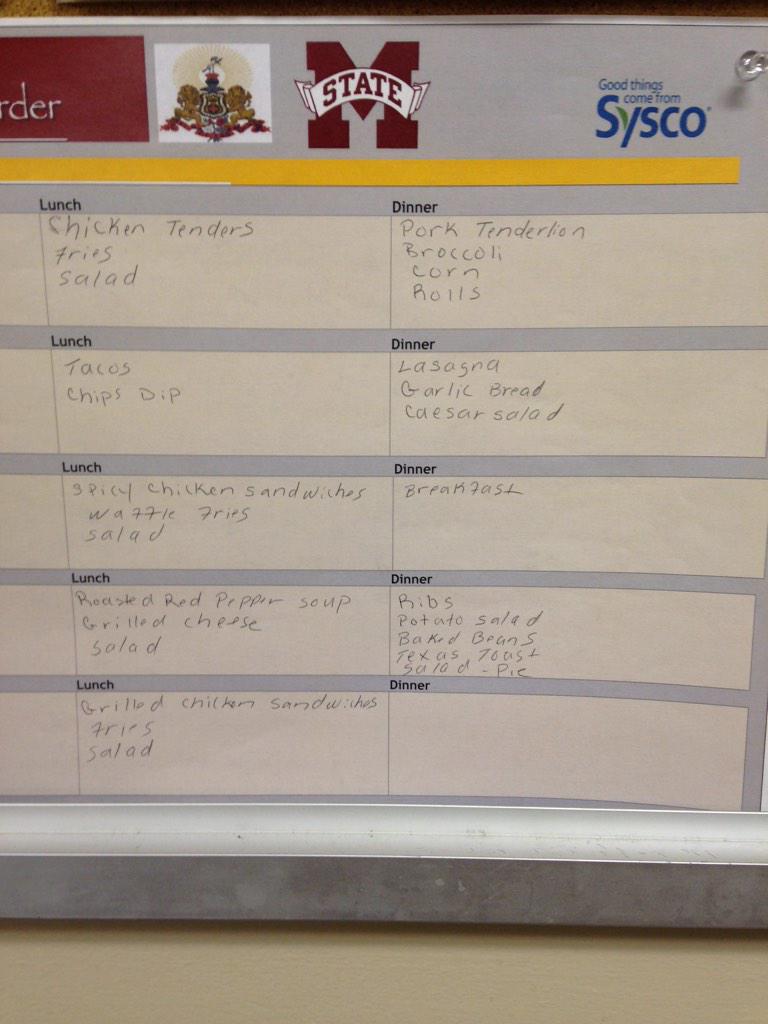 rder
STATE
Good things
come from
Sysco
Lunch
Dinner
Chicken Tenders
Fries
Salad
Pork Tenderlion
Broccoli
Corn
Rolls
Lunch
Dinner
Tacos
Chips Dip
Lasagna
Garlic Bread
Caesar salad
Lunch
Dinner
Spicy chicken sandwiches
waffle Fries
salad
Breakfast
Lunch
Dinner
Roasted Red Pepper soup
Grilled cheese
salad
Ribs
Potato salad
Baked Beans
Texas Toast
Salad - Pie
Lunch
Dinner
Grilled chicken sandwiches
Fries
salad